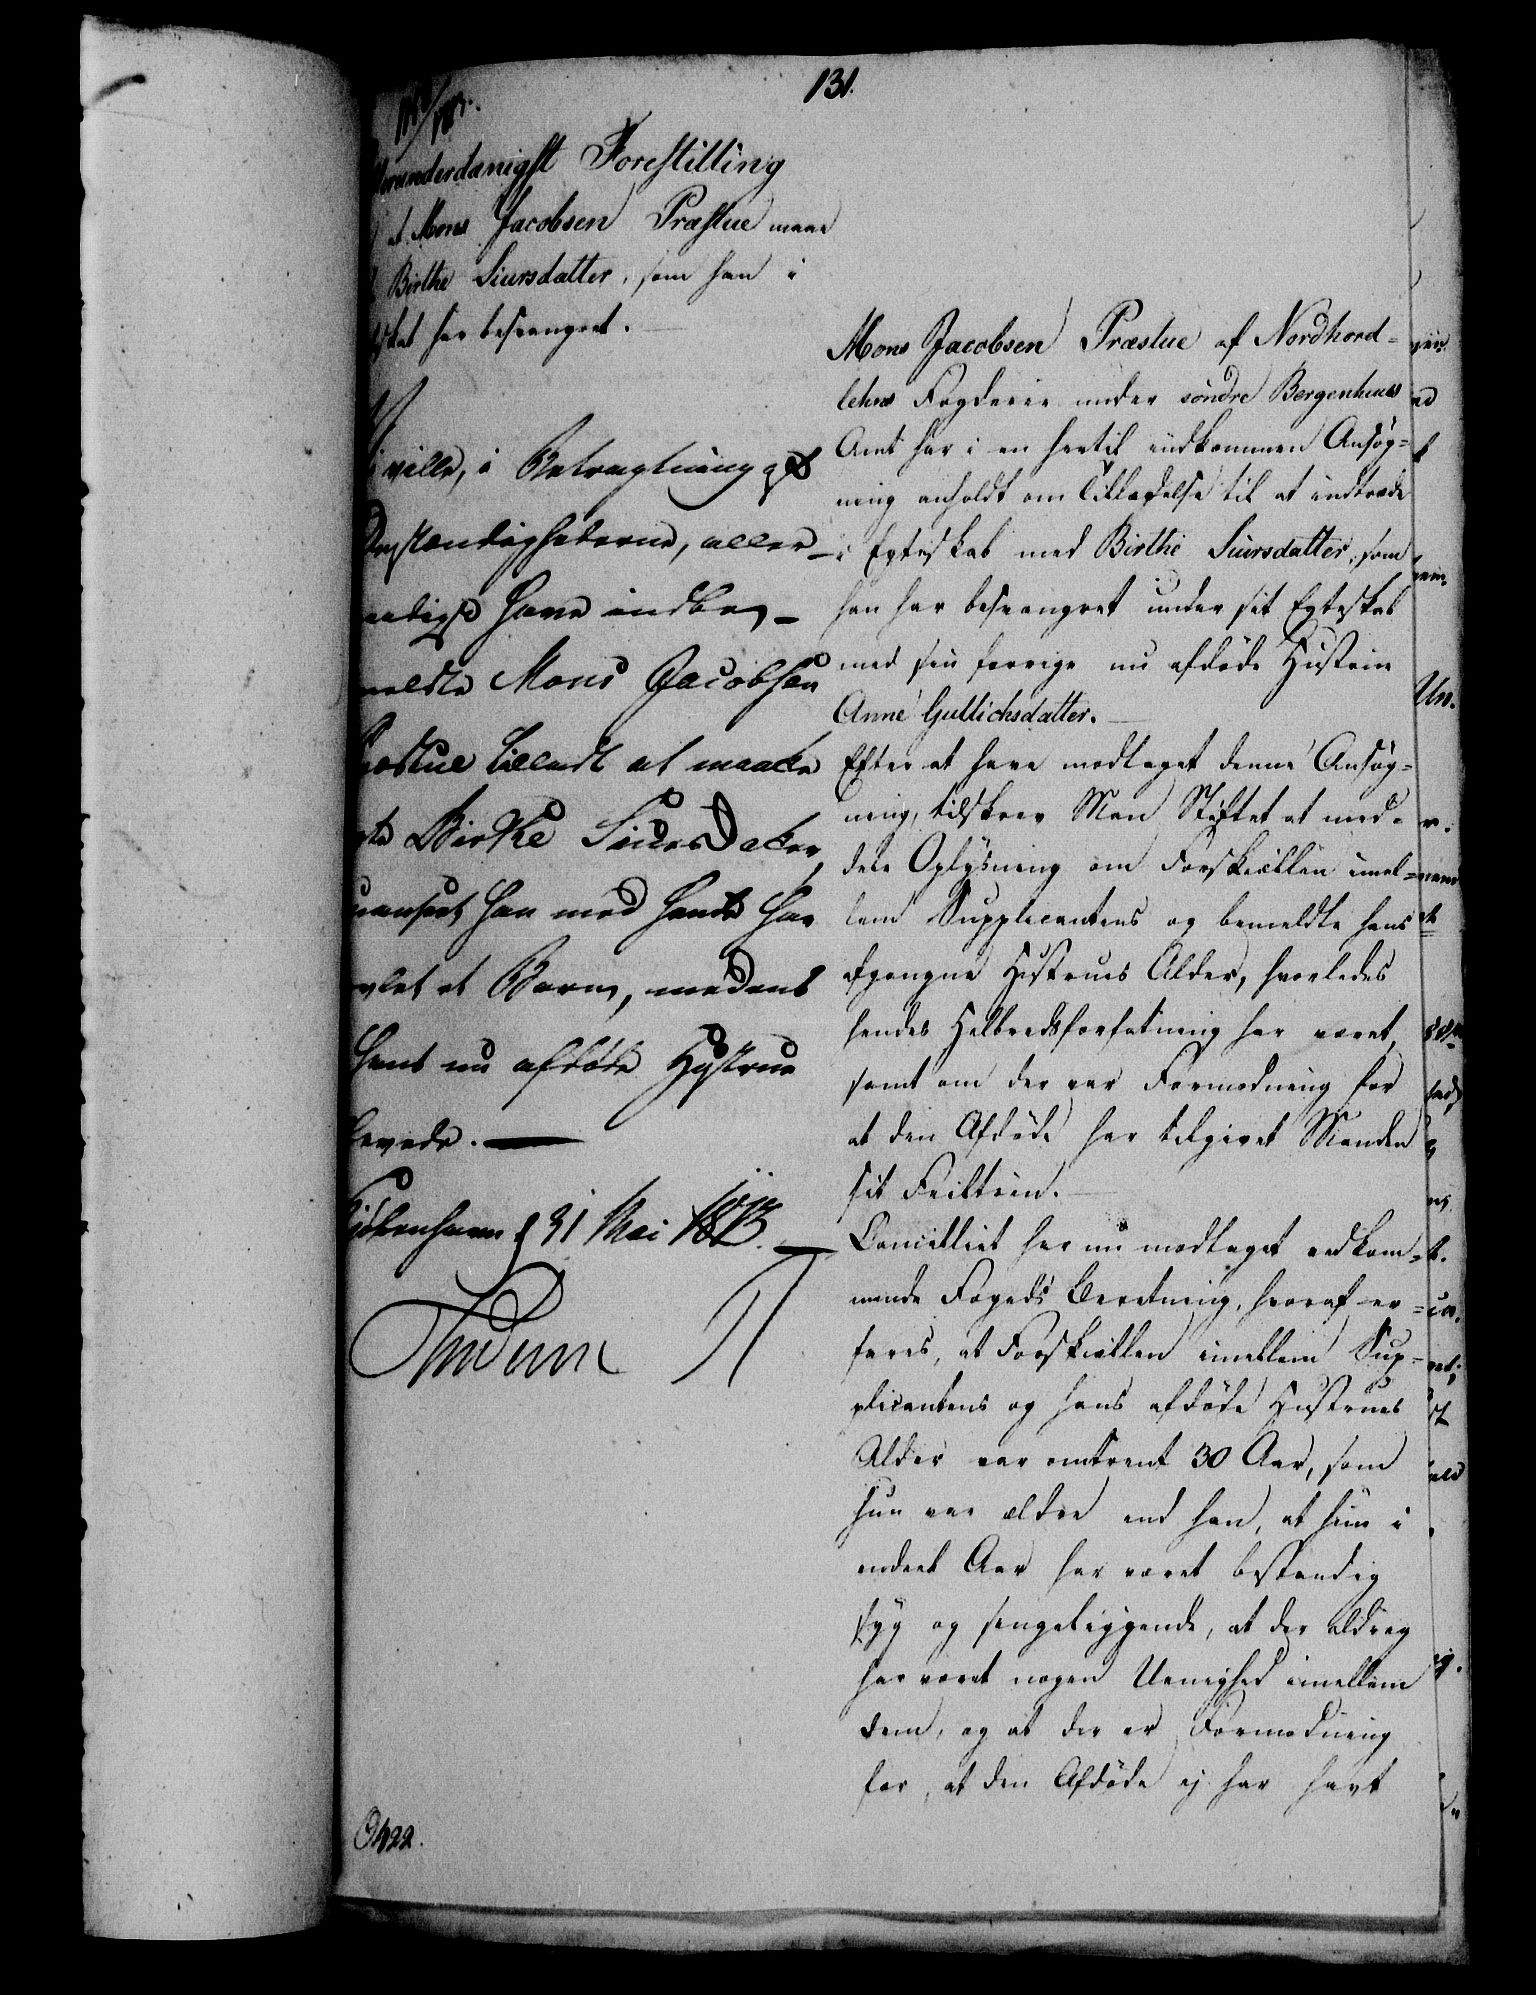 131.
allerunderdanigst Forestilling
at Mons Jacobsen Præstue maae
Birthe Siursdatter, som han i
har besvangret.
Vi ville, i Betragtning af
Omstændighederne, aller-
naadigst have indbe-
meldte Mons Jacobsen
Præstue tilladt at maatte
ægte Birthe Siursdatter,
uanseet han med hende har
avlet et Barn, medens
hans nu afdøde Hustrue
levede.
Kjøbenhavn d 31 Mai 1813.
O422.
Mons Jacobsen Præstue af Nordhord-
lehns Fogderie under söndre Bergenhuus
Amt har i en hertil indkommen Ansøg-
ning anholdt om Tilladelse til at indtræde
i Egteskab med Birthe Siursdatter, som
han har besvangret under sit Egteskab
med sin forrige nu afdøde Hustrue
Anne Gullichsdatter.
Efter at have modtaget denne Ansøg-
ning, tilskrev Man Stiftet at med-
dele Oplysning om Forskiellen imel-
lem Supplicantens og bemeldte hans
afgangne Hustrues Alder, hvorledes
hendes Helbredsforfatning har været,
samt om der var Formodning for
at den Afdøde har tilgivet Manden
sit Feiltrin.
Cancelliet har nu modtaget vedkom-
mende Fogeds Beretning, hvoraf er-
fares, at Forskiellen imellem Sup-
plicantens og hans afdøde Hustrues
Alder var omtrent 30 Aar, som
hun var ældre end han, at hun i
endeel Aar har været bestandig
syg og sengeliggende, at der aldrig
har været nogen Uenighed imellem
dem, og at der er Formodning
for, at den Afdøde ej har havt